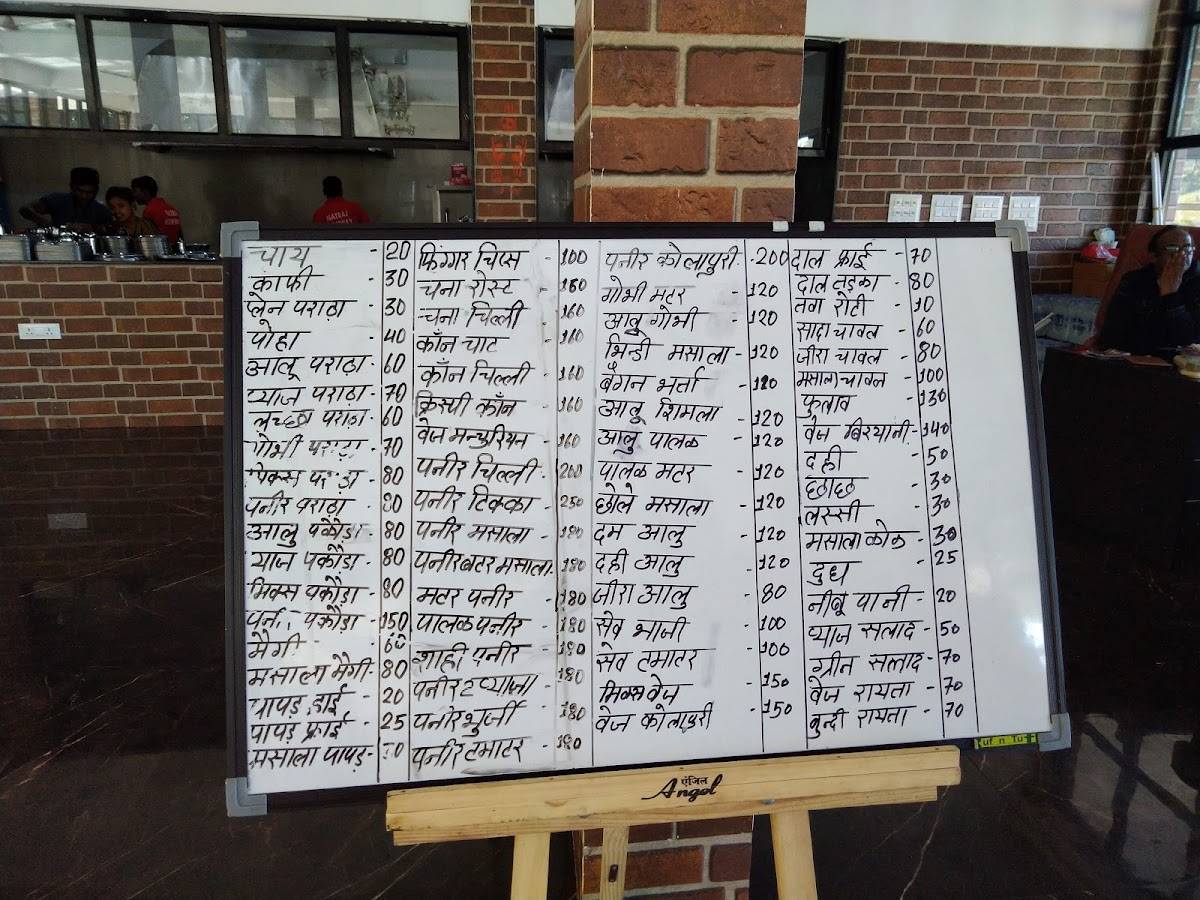 चाय - 20
काफी - 30
प्लेन पराठा - 30
पोहा - 40
आलू पराठा - 60
प्याज पराठा - 70
लच्छा पराठा - 60
गोभी पराठा - 70
मिक्स पराठा - 80
पनीर पराठा - 80
आलु पकौड़ा - 80
प्याज पकौड़ा - 80
मिक्स पकौड़ा - 80
पकौड़ा - 150
मैगी 60
मसाला मैगी - 80
पापड़ ड्राई - 20
पापड़ फ्राई - 25
मसाला पापड़ -
फिंगर चिप्स - 100
चना रोस्ट - 160
चना चिल्ली - 160
कॉन चाट - 160
कॉन चिल्ली - 160
क्रिस्पी कॉन - 160
वेज मन्चुरियन - 160
पनीर चिल्ली - 200
पनीर टिक्का - 250
पनीर मसाला - 180
पनीर बटर मसाला - 180
मटर पनीर - 180
पालक पनीर - 180
शाही पनीर - 180
पनीर टप्याजा - 180
पनीर भुर्जी - 180
पनीर टमाटर - 180
पनीर कोलापुरी - 200
गोभी मटर - 120
आलू गोभी - 120
भिन्डी मसाला - 120
बैगन भर्ता - 120
आलू शिमला - 120
आलु पालक - 120
पालक मटर - 120
छोले मसाला - 120
दम आलु - 120
दही आलु - 120
जीरा आलु - 80
सेव भाजी - 100
सेव टमाटर - 100
मिक्स वेज - 150
वेज कोलापुरी - 150
दाल फ्राई - 70
दाल तड़का - 80
तवा रोटी - 10
सादा चावल - 60
जीरा चावल - 80
मसाला चावल - 100
पुलाव - 130
वेज बिरयानी - 140
दही - 50
छाछ - 30
लस्सी - 30
मसाला कोक - 30
दुध - 25
नीबू पानी - 20
प्याज सलाद - 50
ग्रीन सलाद - 70
वेज रायता - 70
बुन्दी रायता - 70
एंजिल
Angel